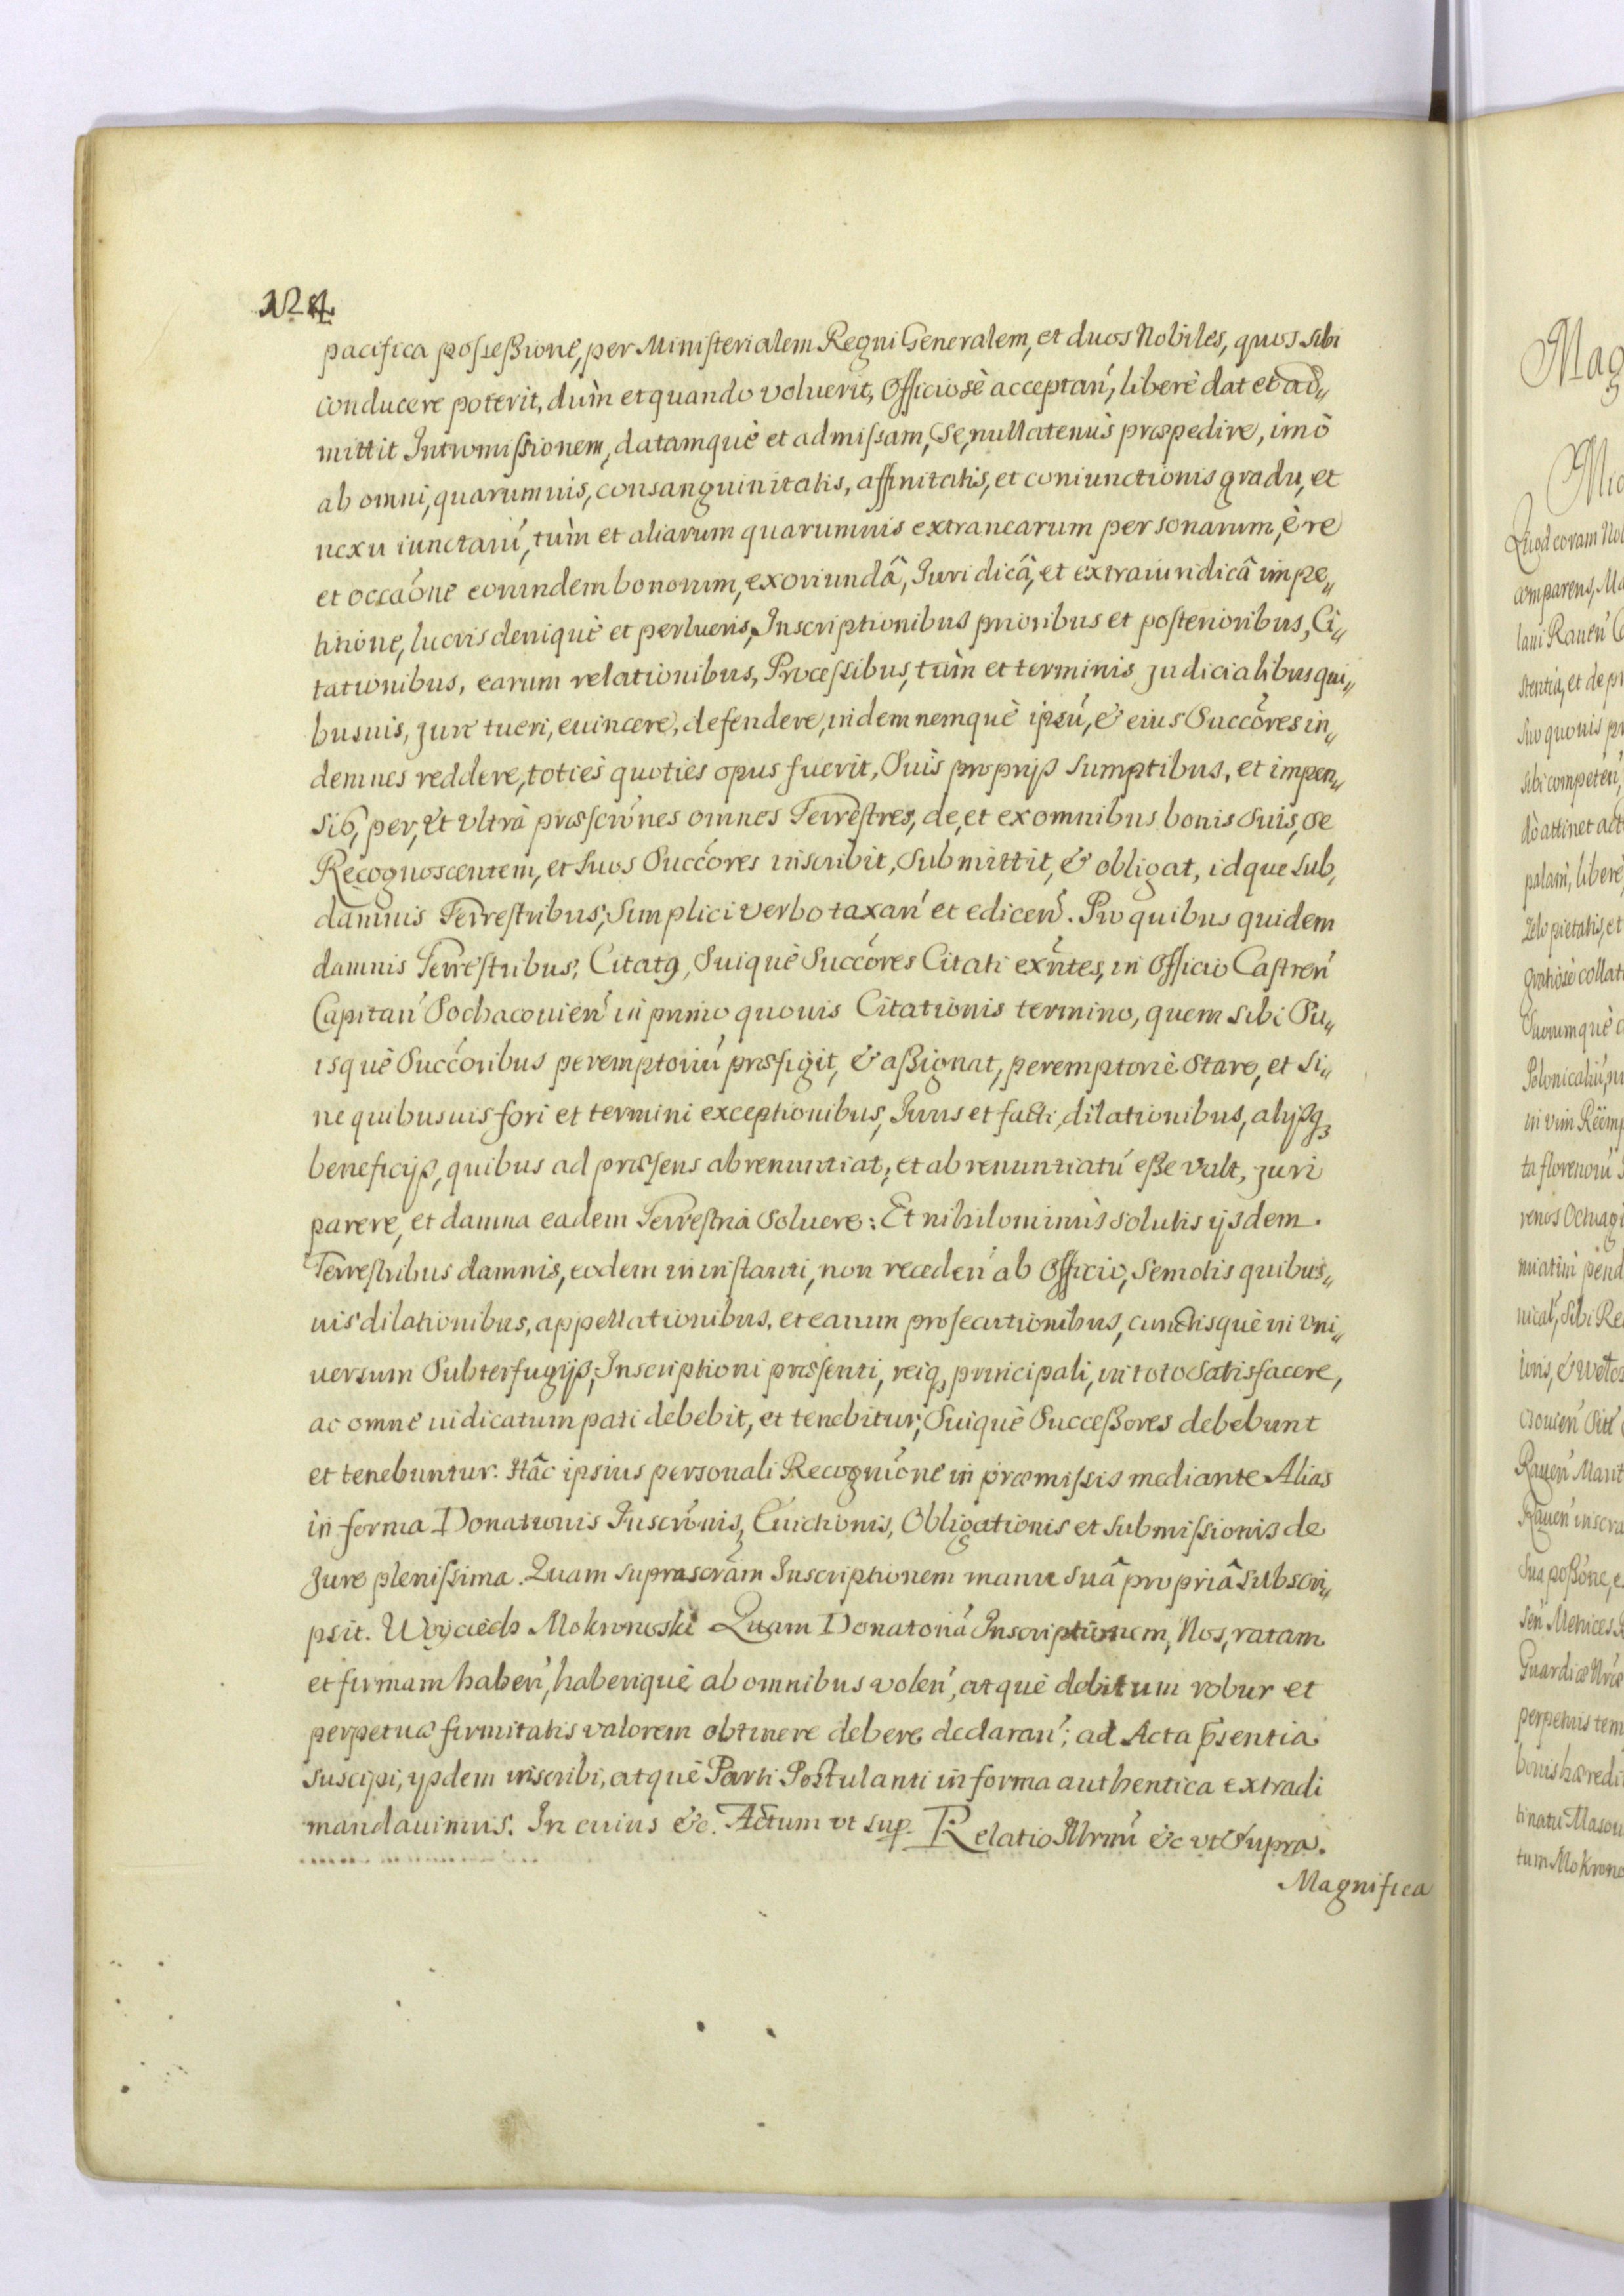 124
pacifica possessione, per Ministerialem Regni Generalem, et duos Nobiles, quos sibi
conducere poterit, dùm et quando voluerit, Officiosè acceptań, liberè dat et ad„
mittit Intromissionem, datamquè et admissam, Se, nullatenùs præpedire, imò
ab omni, quarumuis, consanguinitatis, affinitatis, et coniunctionis gradu, et
nexu iunctarú, tùm et aliarum quarumuis extranearum personarum, è re
et occaóne eorundem bonorum, exoriundâ, Juridicâ, et extraiuridicâ impe„
titione, lucris deniquè et perlucris, Inscriptionibus prioribus et posterioribus, Ci„
tationibus, earum relationibus, Processibus, tùm et terminis judicialibus qui„
busuis, jure tueri, euincere, defendere, indemnemquè ipsú, & eius Succóres in„
demnes reddere, totiès quotiès opus fuerit, Suis proprijs sumptibus, et impen„
sib, per, et vltrà præscriónes omnes Terrestres, de, et ex omnibus bonis suis, se
Recognoscentem, et suos Succóres inscribit, submittit, & obligat, idque sub,
damnis Terrestribus, simplici verbo taxań et ediceń. Pro quibus quidem
damnis Terrestribus, Citatq, Suiquè Succóres Citati exńtes, in Officio Castreń
Capitań Sochacouień in primo quouis Citationis termino, quem sibi Su„
isquè Succóribus peremptoriú præfigit, & assignat, peremptoriè stare, et si„
ne quibusuis fori et termini exceptionibus, Juris et facti, dilationibus, alijsq3
beneficijs, quibus ad præsens abrenuntiat, et abrenuntiatú esse vult, juri
parere, et damna eadem Terrestria soluere: Et nihilominùs solutis ijsdem.
Terrestribus damnis, eodem in instanti, non recedeń ab Officio, semotis quibus„
uis dilationibus, appellationibus, et earum prosecutionibus, cunctisquè in vni„
uersum subterfugijs, Inscriptioni præsenti, reiq3 principali, in toto satisfacere,
ac omne iudicatum pati debebit, et tenebitur, Suiquè Successores debebunt
et tenebuntur. Hâc ipsius personali Recogníone in præmissis mediante Alias
in forma Donationis Inscriónis, Euictionis, Obligationis et submissionis de
Jure plenissima. Quam suprascrám Inscriptionem manu suâ propriâ subscri„
psit. Woyciech Mokronoski Quam Donatoriá Inscriptionem, Nos, ratam
et firmam habeń, haberiquè ab omnibus voleń, atquè debitum robur et
perpetuæ firmitatis valorem obtinere debere declarań; ad Acta p̄sentia
suscipi, ijsdem inscribi, atquè Parti Postulanti in forma authentica extradi
mandauimus. In cuius &c. Actum vt sup. Relatio Illrmú &c vt supra.
Magnifica